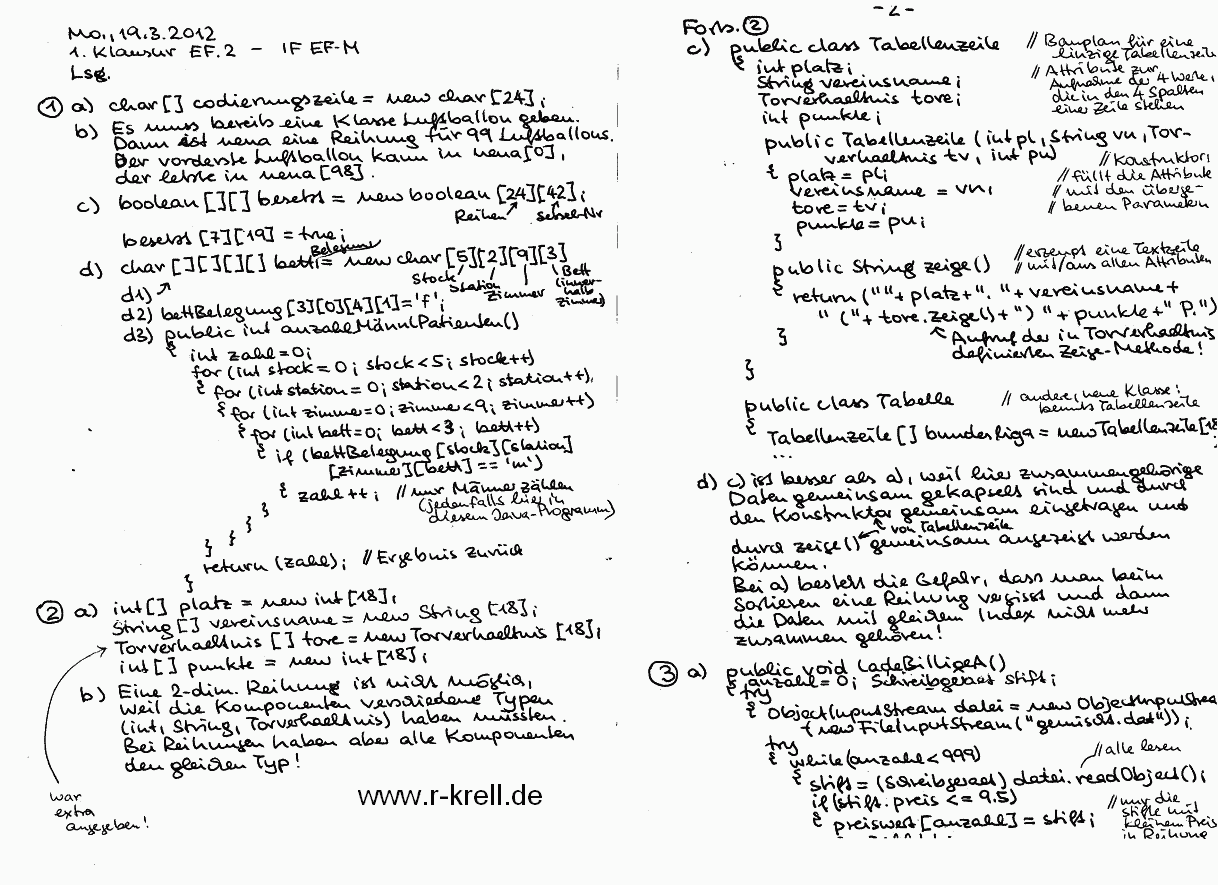 Mo., 19.3.2012
1. Klausur EF.2 – IF EF-M
Lsg.
① a) char[] codierungszeile = new char[24];
b) Es muss bereits eine Klasse Luftballon geben.
Dann ist nena eine Reihung für 99 Luftballons.
Der vorderste Luftballon kann in nena[0],
der letzte in nena[98].
c) boolean[][] besetzt = new boolean[24][42];
Reihen
besetzt[7][19] = true;
d) char[][][][] bett = new char[5][2][9][3]
Belegung
Stock Station Zimmer Bett
(inner-
halb
Zimmer)
d1)
d2) bettBelegung[3][0][4][1]='f';
d3) public int anzahlMännlPatienten()
{ int zahl=0;
for (int stock=0; stock<5; stock++)
{ for (int station=0; station<2; station++)
{ for (int zimmer=0; zimmer<9; zimmer++)
{ for (int bett=0; bett<3; bett++)
{ if (bettBelegung[stock][station]
[zimmer][bett] == 'm')
{ zahl++; // nur Männer zählen
(jedenfalls hier in
diesem Java-Programm)
}
}
}
}
}
return (zahl); // Ergebnis zurück
}
② a) int[] platz = new int[18];
String[] vereinsname = new String[18];
Torverhaeltnis[] tore = new Torverhaeltnis[18];
int[] punkte = new int[18];
b) Eine 2-dim. Reihung ist nicht möglich,
weil die Komponenten verschiedene Typen
(int, String, Torverhaeltnis) haben müssten.
Bei Reihungen haben aber alle Komponenten
den gleichen Typ!
war
extra
angegeben!
www.r-krell.de
-2-
Forts. ②
c) public class Tabellenzeile // Bauplan für eine
einzige Tabellenzeile
{ int platz; // Attribute zur
String vereinsname; Aufnahme der 4 Werte,
Torverhaeltnis tore; die in den 4 Spalten
int punkte; einer Zeile stehen
public Tabellenzeile (int pl, String vn, Tor-
verhaeltnis tv, int pu) // Konstruktor:
{ platz = pl; // füllt die Attribute
vereinsname = vn; // mit den überge-
tore = tv; // benen Parametern
punkte = pu;
}
public String zeige() // erzeugt eine Textzeile
// mit/aus allen Attributen
{ return (""+ platz+". "+ vereinsname+
" ("+ tore.zeige()+") "+ punkte+" P.")
} Aufruf der in Torverhaeltnis
definierten Zeige-Methode!
}
public class Tabelle // andere, neue Klasse:
benutzt Tabellenzeile
{ Tabellenzeile[] bundesliga = new Tabellenzeile[18
...
d) c) ist besser als a), weil hier zusammengehörige
Daten gemeinsam gekapselt sind und durch
den Konstruktor gemeinsam eingetragen und
von Tabellenzeile
durch zeige() gemeinsam angezeigt werden
können.
Bei a) besteht die Gefahr, dass man beim
Sortieren eine Reihung vergisst und dann
die Daten mit gleichem Index nicht mehr
zusammen gehören!
③ a) public void ladeBilligeA()
{ anzahl = 0; Schreibgeraet stift;
try
{ ObjectInputStream datei = new ObjectInputStrea
(new FileInputStream ("gemischt.dat"));
try
{ while (anzahl < 999) // alle lesen
{ stift = (Schreibgeraet) datei.readObject();
if (stift.preis <= 9.5) // nur die
{ preiswert[anzahl] = stift; stifte mit
kleinem Preis
in Reihung